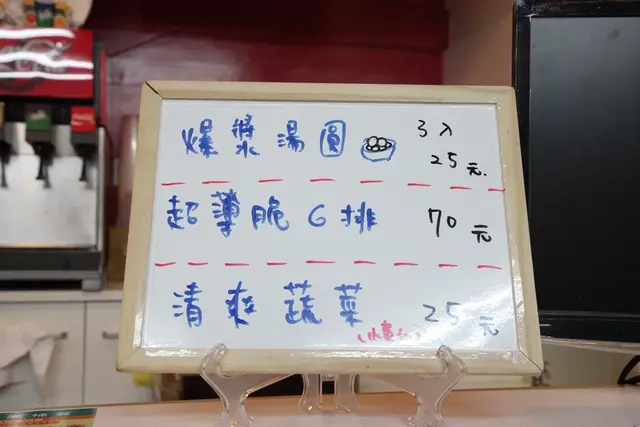 爆漿湯圓 3入
25元.
超薄脆G排 70元
清爽蔬菜 25元